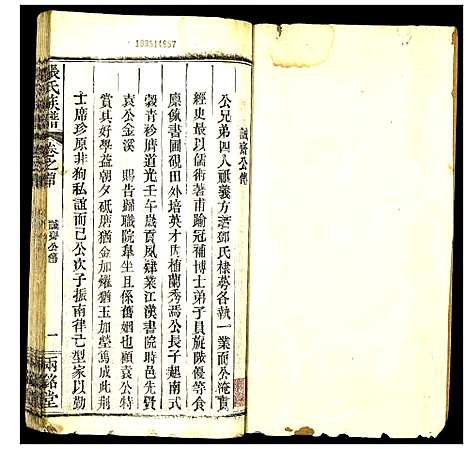 183514957
誠齋公傳
公兄弟四人祇義方訓鄧氏棣萼各執一業而公淹貫
經史最以儒術著甫踰冠補博士弟子員旋陟優等食
廩餼書圃硯田外培英才內植蘭秀焉公長子超南式
穀青衫膺道光壬午歲貢夙肄業江漢書院時邑先賢
袁公金溪賜告歸職院皋坐且係舊姻也顧袁公特
賞真好學益朝夕砥磨猶金加耀猶玉加瑩焉成此荆
士席珍原非狥私誼而已公次子振南律己型家以勤
張氏族譜
卷之首
誠齋公傳
一
兩銘堂